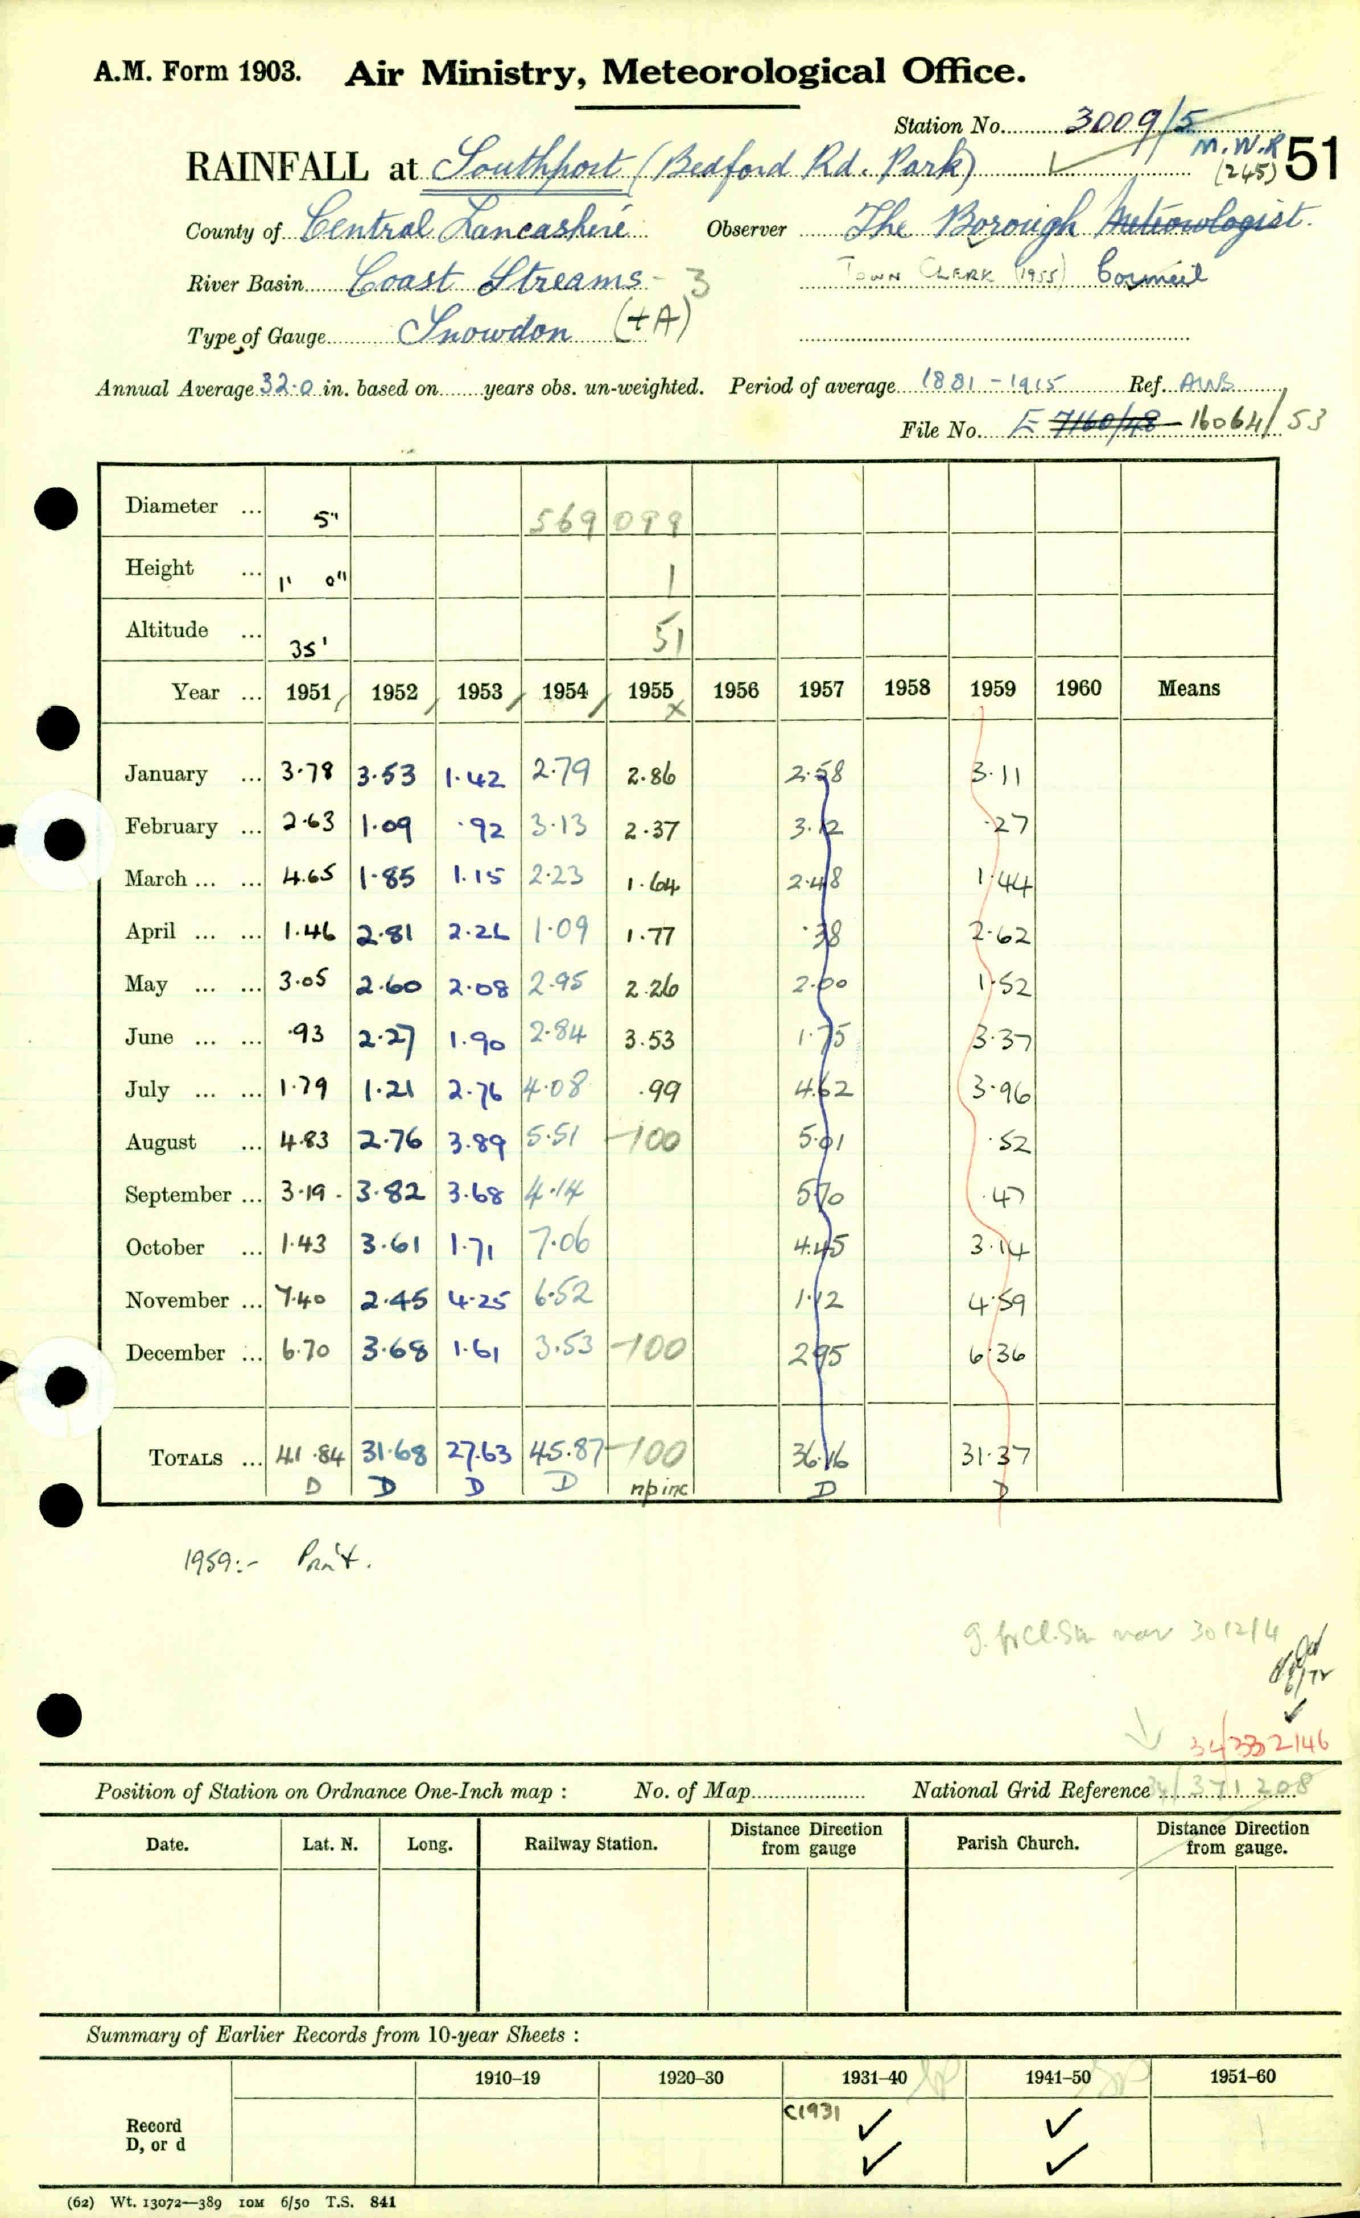 A.M. Form 1903. Air Ministry, Meteorological Office.
Station No. 3009/5
M.W.R
RAINFALL at Southport (Bedford Rd. Park) (245) 51
County of Central Lancashire Observer The Borough Meteorologist.
River Basin Coast Streams - 3 TOWN CLERK (1955) Council
Type of Gauge Snowdon (+A)
Annual Average 32.0 in. based on years obs. un-weighted. Period of average 1881-1915 Ref. AWB
File No. E 7160/48 - 16064/53
Diameter ... 5" 569 099
Height ... 1' 0" 1
Altitude ... 35' 51
Year ... 1951 1952 1953 1954 1955 1956 1957 1958 1959 1960 Means
x
January ... 3.78 3.53 1.42 2.79 2.86 2.58 3.11
February ... 2.63 1.09 .92 3.13 2.37 3.12 .27
March ... ... 4.65 1.85 1.15 2.23 1.64 2.48 1.44
April ... ... 1.46 2.81 2.26 1.09 1.77 .38 2.62
May ... ... 3.05 2.60 2.08 2.95 2.26 2.00 1.52
June ... ... .93 2.27 1.90 2.84 3.53 1.75 3.37
July ... ... 1.79 1.21 2.76 4.08 .99 4.62 3.96
August ... 4.83 2.76 3.89 5.51 -100 5.01 .52
September ... 3.19 . 3.82 3.68 4.14 5.70 .47
October ... 1.43 3.61 1.71 7.06 4.45 3.14
November ... 7.40 2.45 4.25 6.52 1.12 4.59
December ... 6.70 3.68 1.61 3.53 -100 2.95 6.36
TOTALS ... 41.84 31.68 27.63 45.87 -100 36.16 31.37
D D D D np inc D D
1959:-
30/12/4
34/332146
Position of Station on Ordnance One-Inch map : No. of Map National Grid Reference 34/371208
Date. Lat. N. Long. Railway Station. Distance Direction from gauge Parish Church. Distance Direction from gauge.
Summary of Earlier Records from 10-year Sheets :
1910-19 1920-30 1931-40 1941-50 1951-60
Record D, or d C1931 ✓ ✓
✓ ✓
(62) Wt. 13072—389 10M 6/50 T.S. 841